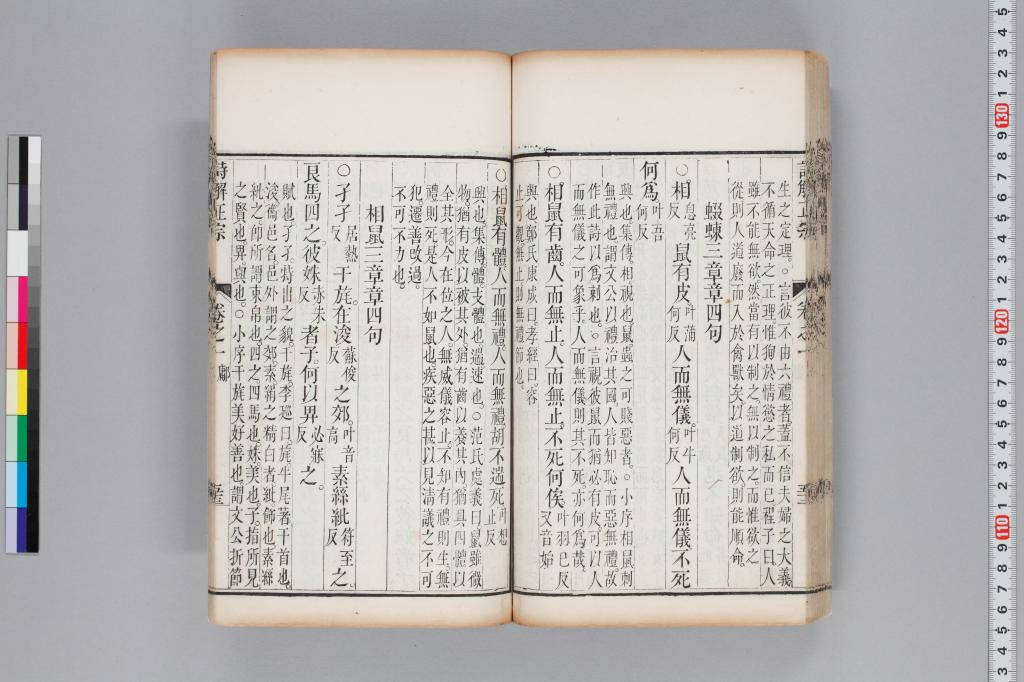 生之定理。○言彼不由六禮者蓋不信夫婦之大義
不循天命之正理惟狥於情慾之私而已程子曰人
雖不能無欲。然當有以制之。無以制之。而惟欲之
從則人道廢而入於禽獸矣。以道制欲則能順命
蝃蝀三章章四句
○相息亮反鼠有皮叶蒲何反人而無儀叶牛何反人而無儀不死
何爲叶吾何反
興也集傳。相視也鼠蟲之可賤惡者。○小序相鼠刺
無禮也謂文公以禮治其國人皆知恥而惡無禮。故
作此詩以爲刺也。○言視彼鼠而猶必有皮可以人
而無儀之可象乎人而無儀則其不死亦何爲哉
○相鼠有齒。人而無止。人而無止不死何俟叶羽已反又音始
興也鄭氏康成曰孝經曰容
止可觀無止則無禮節也
○相鼠有體。人而無禮人而無禮胡不遄死叶想止反
興也集傳體支體也遄速也○范氏處義曰鼠雖微
物猶有皮以被其外猶有齒以養其內猶具四體以
全其形今在位之人無威儀容止不知有禮則生無
禮則死是人不如鼠也疾惡之甚以見清議之不可
犯遷善改過
不可不力也。
相鼠三章章四句
○孑孑居熱反干旄在浚蘇俊反之郊叶音高素絲紕符至反之。
良馬四之彼姝赤朱反者子。何以畀必寐反之。
賦也孑孑特出之貌干旄李巡曰旄牛尾著干首也
浚衞邑名邑外謂之郊素絹之精白者紕飾也素絲
紕之即所謂束帛也四之四馬也姝美也子指所見
之賢也畀與也。○小序干旄美好善也謂文公折節
詩解正宗
卷之一
鄘